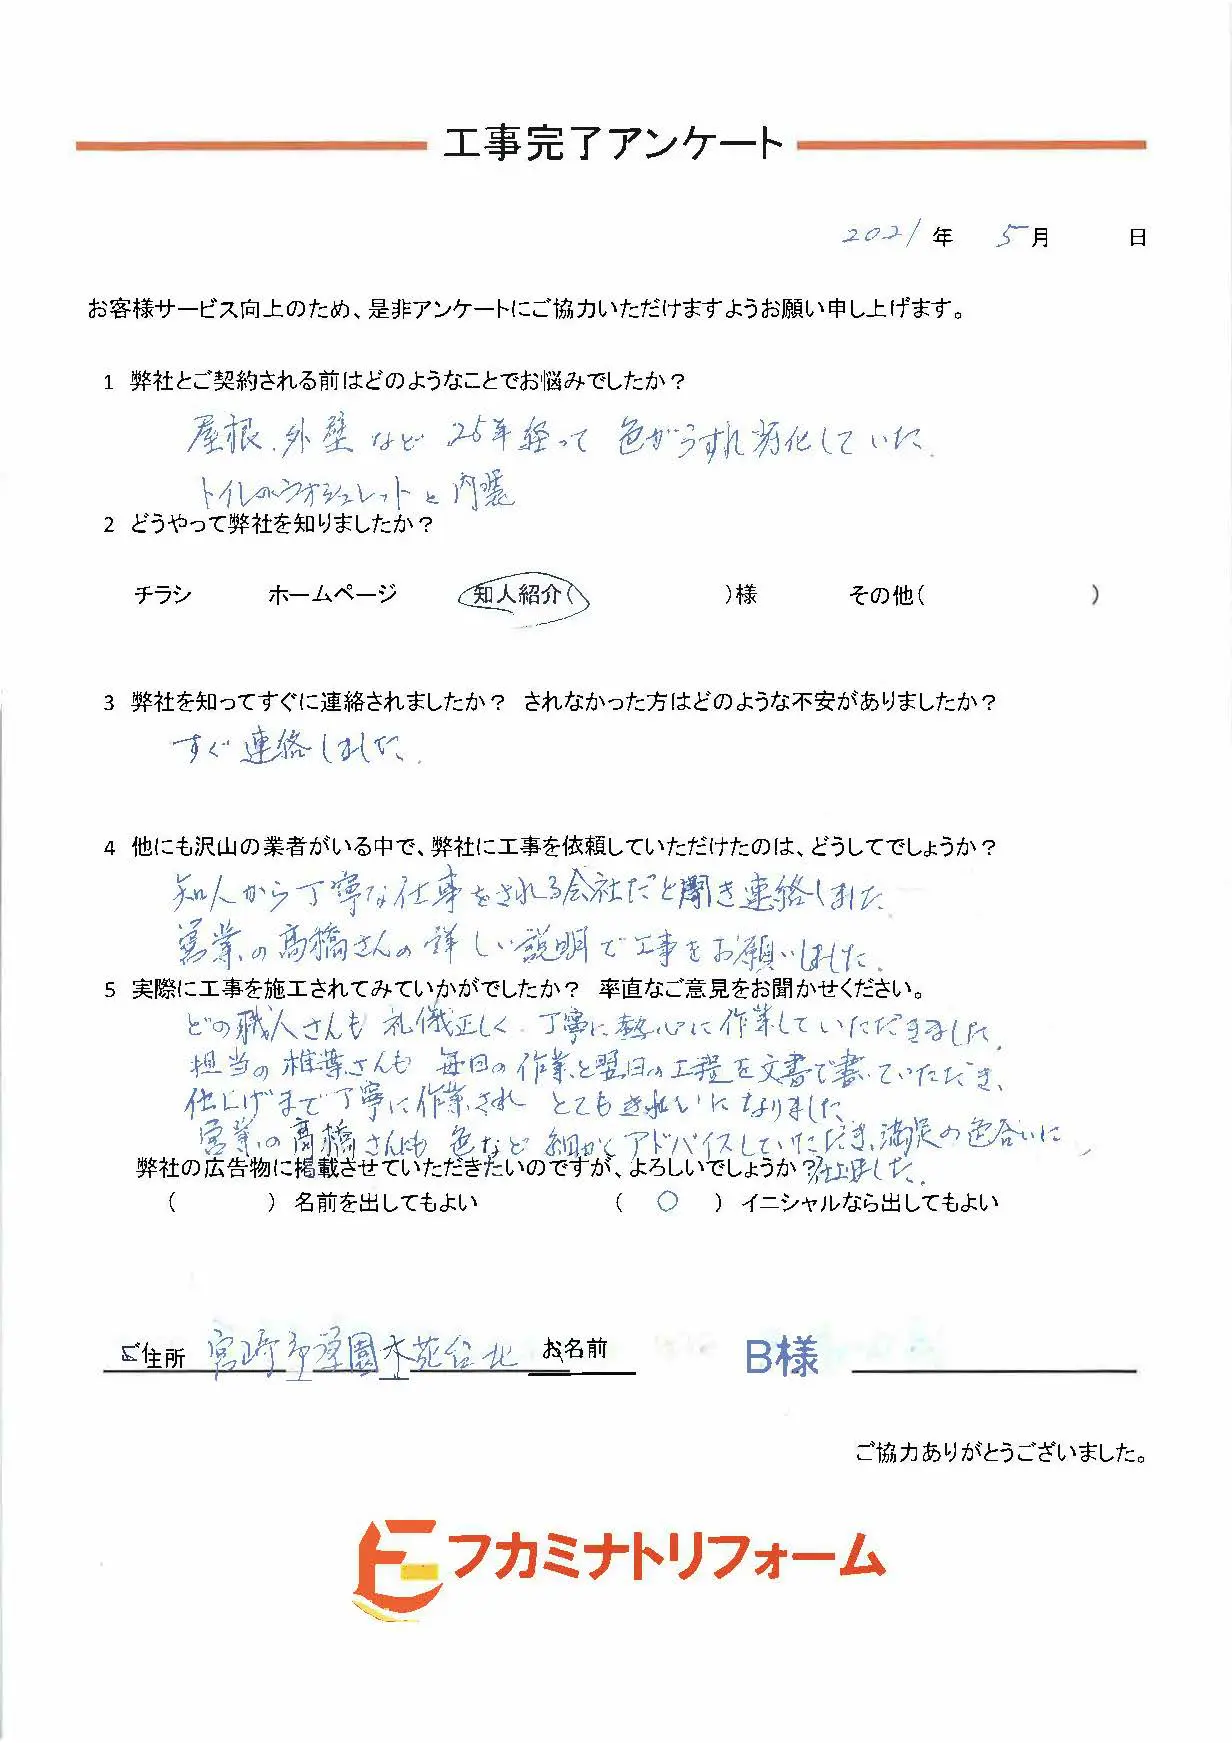 工事完了アンケート
2021年 5月 日
お客様サービス向上のため、是非アンケートにご協力いただけますようお願い申し上げます。
1 弊社とご契約される前はどのようなことでお悩みでしたか？
屋根、外壁など 25年経って 色がうすれ劣化していた。
トイレのウオシュレットと内装
2 どうやって弊社を知りましたか？
チラシ ホームページ 知人紹介( )様 その他( )
3 弊社を知ってすぐに連絡されましたか？ されなかった方はどのような不安がありましたか？
すぐ連絡しました。
4 他にも沢山の業者がいる中で、弊社に工事を依頼していただけたのは、どうしてでしょうか？
知人から丁寧な仕事をされる会社だと聞き連絡しました
営業の高橋さんの詳しい説明で工事をお願いしました。
5 実際に工事を施工されてみていかがでしたか？ 率直なご意見をお聞かせください。
どの職人さんも 礼儀正しく、丁寧に熱心に作業していただきました。
担当の椎葉さんも 毎日の作業と翌日の工程を文書で書いていただき、
仕上げまで丁寧に作業され とてもきれいになりました
営業の高橋さんにも 色など 細かくアドバイスしていただき、満足の色合いに
仕上りました。
弊社の広告物に掲載させていただきたいのですが、よろしいでしょうか？
( ) 名前を出してもよい ( ○ ) イニシャルなら出してもよい
ご住所 宮崎市学園木花台北 お名前 B様
ご協力ありがとうございました。
フカミナトリフォーム